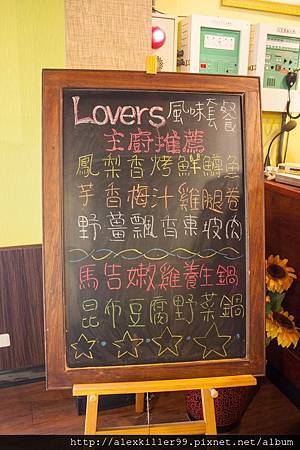 Lovers風味套餐
主廚推薦
鳳梨香烤鮮鱒魚
芋香梅汁雞腿卷
野薑飄香東坡肉
馬告嫩雞養生鍋
昆布豆腐野菜鍋
http://alexkiller99.pixnet.net/album